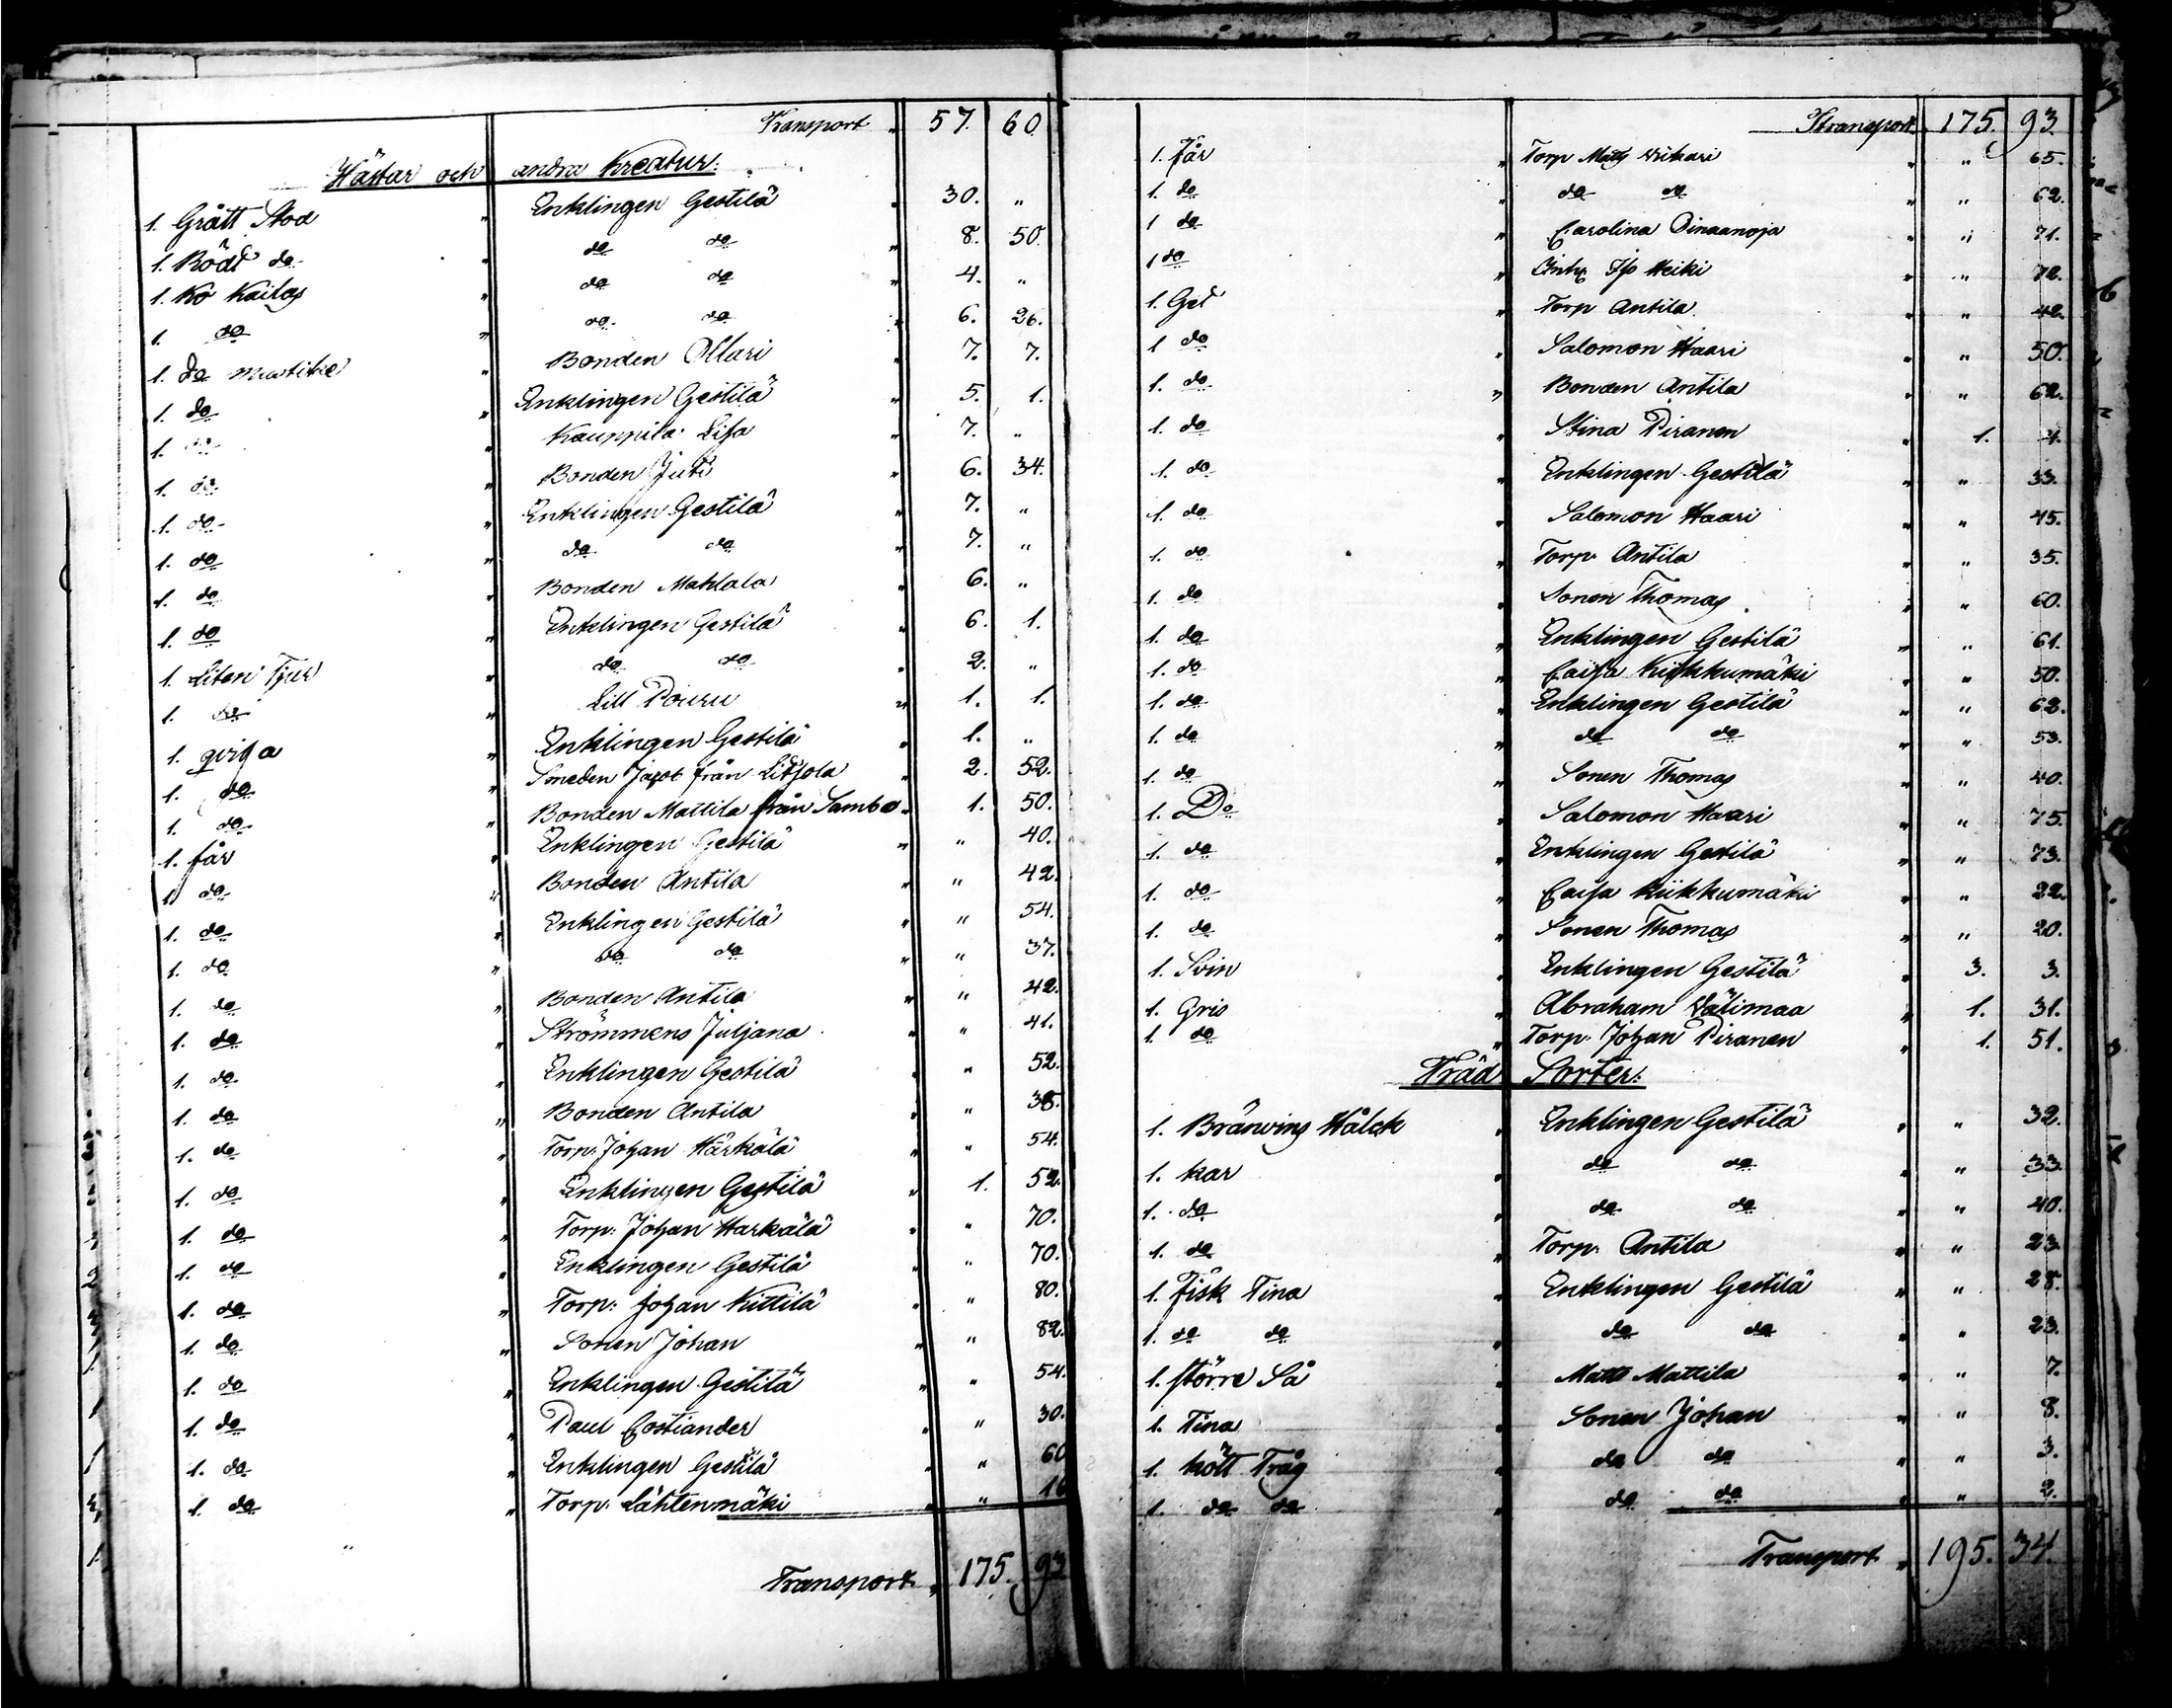 Transport „ 57. 60.
Hästar och andra Kreatur:
1. Grått Stod „ Enklingen Gestilä „ 30. „
1. Rödt do „ do do „ 8. 50.
1. Ko Kailas „ do do „ 4. „
1. do „ do do „ 6. 26.
1. do mustikä „ Bonden Ollari „ 7. 7.
1. do „ Enklingen Gestilä „ 5. 1.
1. do „ Kauppila Lisa „ 7. „
1. do „ Bonden Juti „ 6. 34.
1. do „ Enklingen Gestilä „ 7. „
1. do „ do do „ 7. „
1. do „ Bonden Mahlala „ 6. „
1. do „ Enklingen Gestilä „ 6. 1.
1. Liten Tjur „ do do „ 2. „
1. do „ Lill Pouru „ 1. 1.
1. qviga „ Enklingen Gestilä „ 1. „
1. do „ Smeden Jacob från Litjola „ 2. 52.
1. do „ Bonden Mattila från Sambo „ 1. 50.
1. får „ Enklingen Gestilä „ „ 40.
1 do „ Bonden Antila „ „ 42.
1. do „ Enklingen Gestilä „ „ 54.
1. do „ do do „ „ 37.
1. do „ Bonden Antila „ „ 42.
1. do „ Strömmens Juljana „ „ 41.
1. do „ Enklingen Gestilä „ „ 52.
1. do „ Bonden Antila „ „ 38.
1. do „ Torp: Johan Härkälä „ „ 54.
1. do „ Enklingen Gestilä „ 1. 52.
1. do „ Torp: Johan Harkälä „ „ 70.
1. do „ Enklingen Gestilä „ „ 70.
1. do „ Torp: Johan Kittilä „ „ 80.
1. do „ Sonen Johan „ „ 82.
1. do „ Enklingen Gestilä „ „ 54.
1. do „ Paul Costiander „ „ 30.
1. do „ Enklingen Gestilä „ „ 60
1. do „ Torp: Lähtenmäki „ „ 16
Transport „ 175. 93
Transport 175. 93.
1. får „ Torp Matts Wikari „ „ 65.
1. do „ do do „ „ 62.
1 do „ Carolina Oinaanoja „ „ 71.
1 do „ Heiki „ „ 72.
1. Get „ Torp Antila „ „ 42.
1 do „ Salomon Haari „ „ 50.
1. do „ Bonden Antila „ „ 62.
1. do „ Stina Piranen „ 1. 4.
1. do „ Enklingen Gestilä „ „ 33.
1. do „ Salomon Haari „ „ 45.
1. do „ Torp Antila „ „ 35.
1. do „ Sonen Thomas „ „ 60.
1. do „ Enklingen Gestilä „ „ 61.
1. do „ Caisa Kiikkumäki „ „ 50.
1. do „ Enklingen Gestilä „ „ 62.
1. do „ do do „ „ 53.
1. do „ Sonen Thomas „ „ 40.
1. Do „ Salomon Haari „ „ 75.
1. do „ Enklingen Gestilä „ „ 73.
1. do „ Caisa Kiikkumäki „ „ 22.
1. do „ Sonen Thomas „ „ 20.
1. Svin „ Enklingen Gestilä „ 3. 3.
1. Gris „ Abraham Välimaa „ 1. 31.
1. do „ Torp: Johan Piranen „ 1. 51.
Träd Sorter:
1. Bränvins Hålck „ Enklingen Gestilä „ „ 32.
1. kar „ do do „ „ 33.
1. do „ do do „ „ 40.
1. do „ Torp: Antila „ „ 23.
1. fisk Tina „ Enklingen Gestilä „ „ 28.
1. do do „ do do „ „ 23.
1. större Så „ Matts Mattila „ „ 7.
1. Tina „ Sonen Johan „ „ 8.
1. kött Tråg „ do do „ „ 3.
1. do do „ do do „ „ 2.
Transport „ 195. 34.